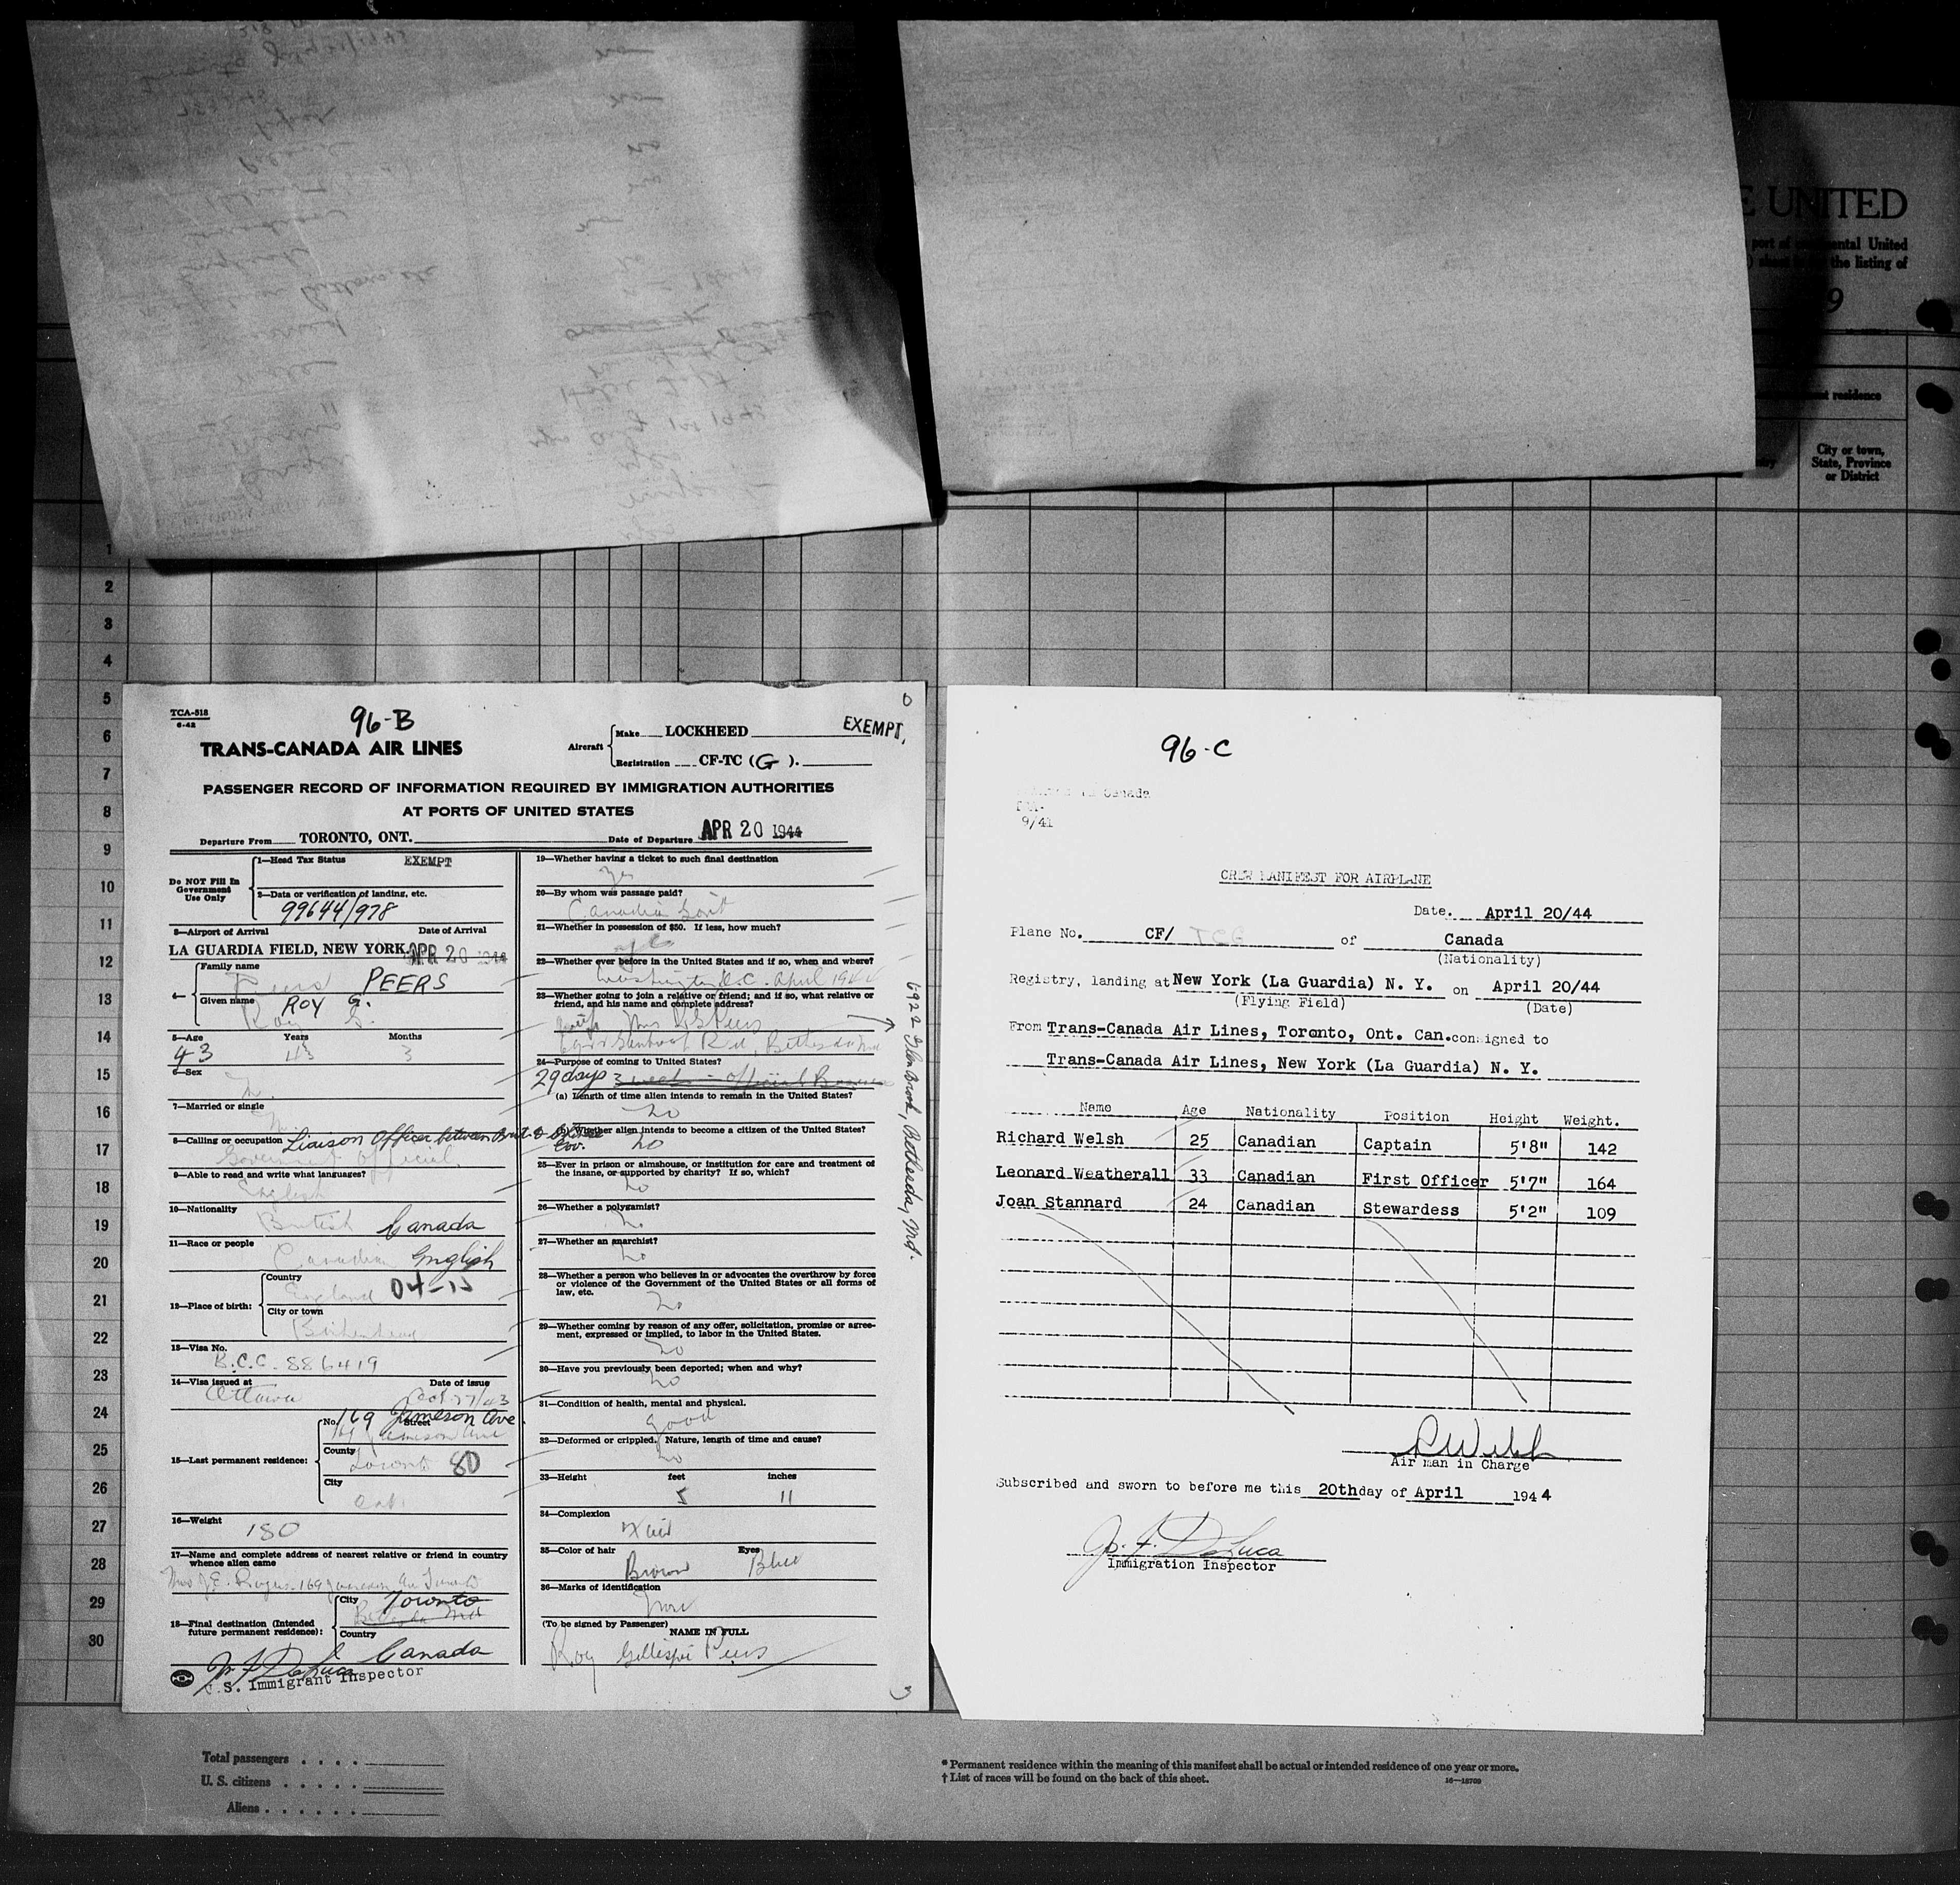 E UNITED
port of
ental United
the listing of
9
nt residence
City or town,
State, Province
or District
1
2
3
4
5
6
7
8
9
10
11
12
13
14
15
16
17
18
19
20
21
22
23
24
25
26
27
28
29
30
TCA-518
6-42
96-B
TRANS-CANADA AIR LINES
Aircraft
Make LOCKHEED
Registration CF-TC (G).
EXEMPT,
PASSENGER RECORD OF INFORMATION REQUIRED BY IMMIGRATION AUTHORITIES
AT PORTS OF UNITED STATES
Departure From TORONTO, ONT. Date of Departure APR 20 1944
Do NOT Fill In
Government
Use Only
1—Head Tax Status EXEMPT
2—Data or verification of landing, etc.
99644/978
3—Airport of Arrival Date of Arrival
LA GUARDIA FIELD, NEW YORK APR 20 1944
4—
Family name
Peers PEERS
Given name ROY G.
Roy G.
5—Age Years Months
43 43 3
6—Sex
M.
7—Married or single
M.
8—Calling or occupation Liaison Officer between Brit. &
Gov.
Government Official
9—Able to read and write what languages?
English
10—Nationality
British Canada
11—Race or people
Canadian English
12—Place of birth:
Country
England 04-12
City or town
Birkenhead
13—Visa No.
B.C.C. 886419
14—Visa issued at Date of issue
Ottawa Oct 27/43
15—Last permanent residence:
No. 169 Street Jameson Ave
169 Jameson Ave
County
Toronto 80
City
Ont.
16—Weight
180
17—Name and complete address of nearest relative or friend in country
whence alien came
Mrs J.E. Rogers. 169 Jameson Av Toronto
18—Final destination (Intended
future permanent residence):
City Toronto
Bethesda Md
Country
Canada
J. F. DeLuca
U.S. Immigrant Inspector
19—Whether having a ticket to such final destination
Yes
20—By whom was passage paid?
Canadian Govt
21—Whether in possession of $50. If less, how much?
yes
22—Whether ever before in the United States and if so, when and where?
Washington D.C. April 1944
23—Whether going to join a relative or friend; and if so, what relative or
friend, and his name and complete address?
wife Mrs R G Peers
6922 Glenbrook Rd, Bethesda Md
6922 Glenbrook, Bethesda, Md.
24—Purpose of coming to United States?
29 days 3 weeks - official Business
(a) Length of time alien intends to remain in the United States?
no
(b) Whether alien intends to become a citizen of the United States?
no
25—Ever in prison or almshouse, or institution for care and treatment of
the insane, or supported by charity? If so, which?
no
26—Whether a polygamist?
no
27—Whether an anarchist?
no
28—Whether a person who believes in or advocates the overthrow by force
or violence of the Government of the United States or all forms of
law, etc.
no
29—Whether coming by reason of any offer, solicitation, promise or agree-
ment, expressed or implied, to labor in the United States.
no
30—Have you previously been deported; when and why?
no
31—Condition of health, mental and physical.
good
32—Deformed or crippled. Nature, length of time and cause?
no
33—Height feet inches
5 11
34—Complexion
Fair
35—Color of hair Eyes
Brown Blue
36—Marks of identification
None
(To be signed by Passenger)
NAME IN FULL
Roy Gillespie Peers
96-C
Canada
9/41
CREW MANIFEST FOR AIRPLANE
Date. April 20/44
Plane No. CF/ TCG of Canada
(Nationality)
Registry, landing at New York (La Guardia) N. Y. on April 20/44
(Flying Field) (Date)
From Trans-Canada Air Lines, Toronto, Ont. Can. consigned to
Trans-Canada Air Lines, New York (La Guardia) N. Y.
Name Age Nationality Position Height Weight.
Richard Welsh 25 Canadian Captain 5'8" 142
Leonard Weatherall 33 Canadian First Officer 5'7" 164
Joan Stannard 24 Canadian Stewardess 5'2" 109
R Welsh
Air man in Charge
Subscribed and sworn to before me this 20th day of April 1944
J. F. DeLuca
Immigration Inspector
Total passengers
U. S. citizens
Aliens
* Permanent residence within the meaning of this manifest shall be actual or intended residence of one year or more.
† List of races will be found on the back of this sheet.
16—18709